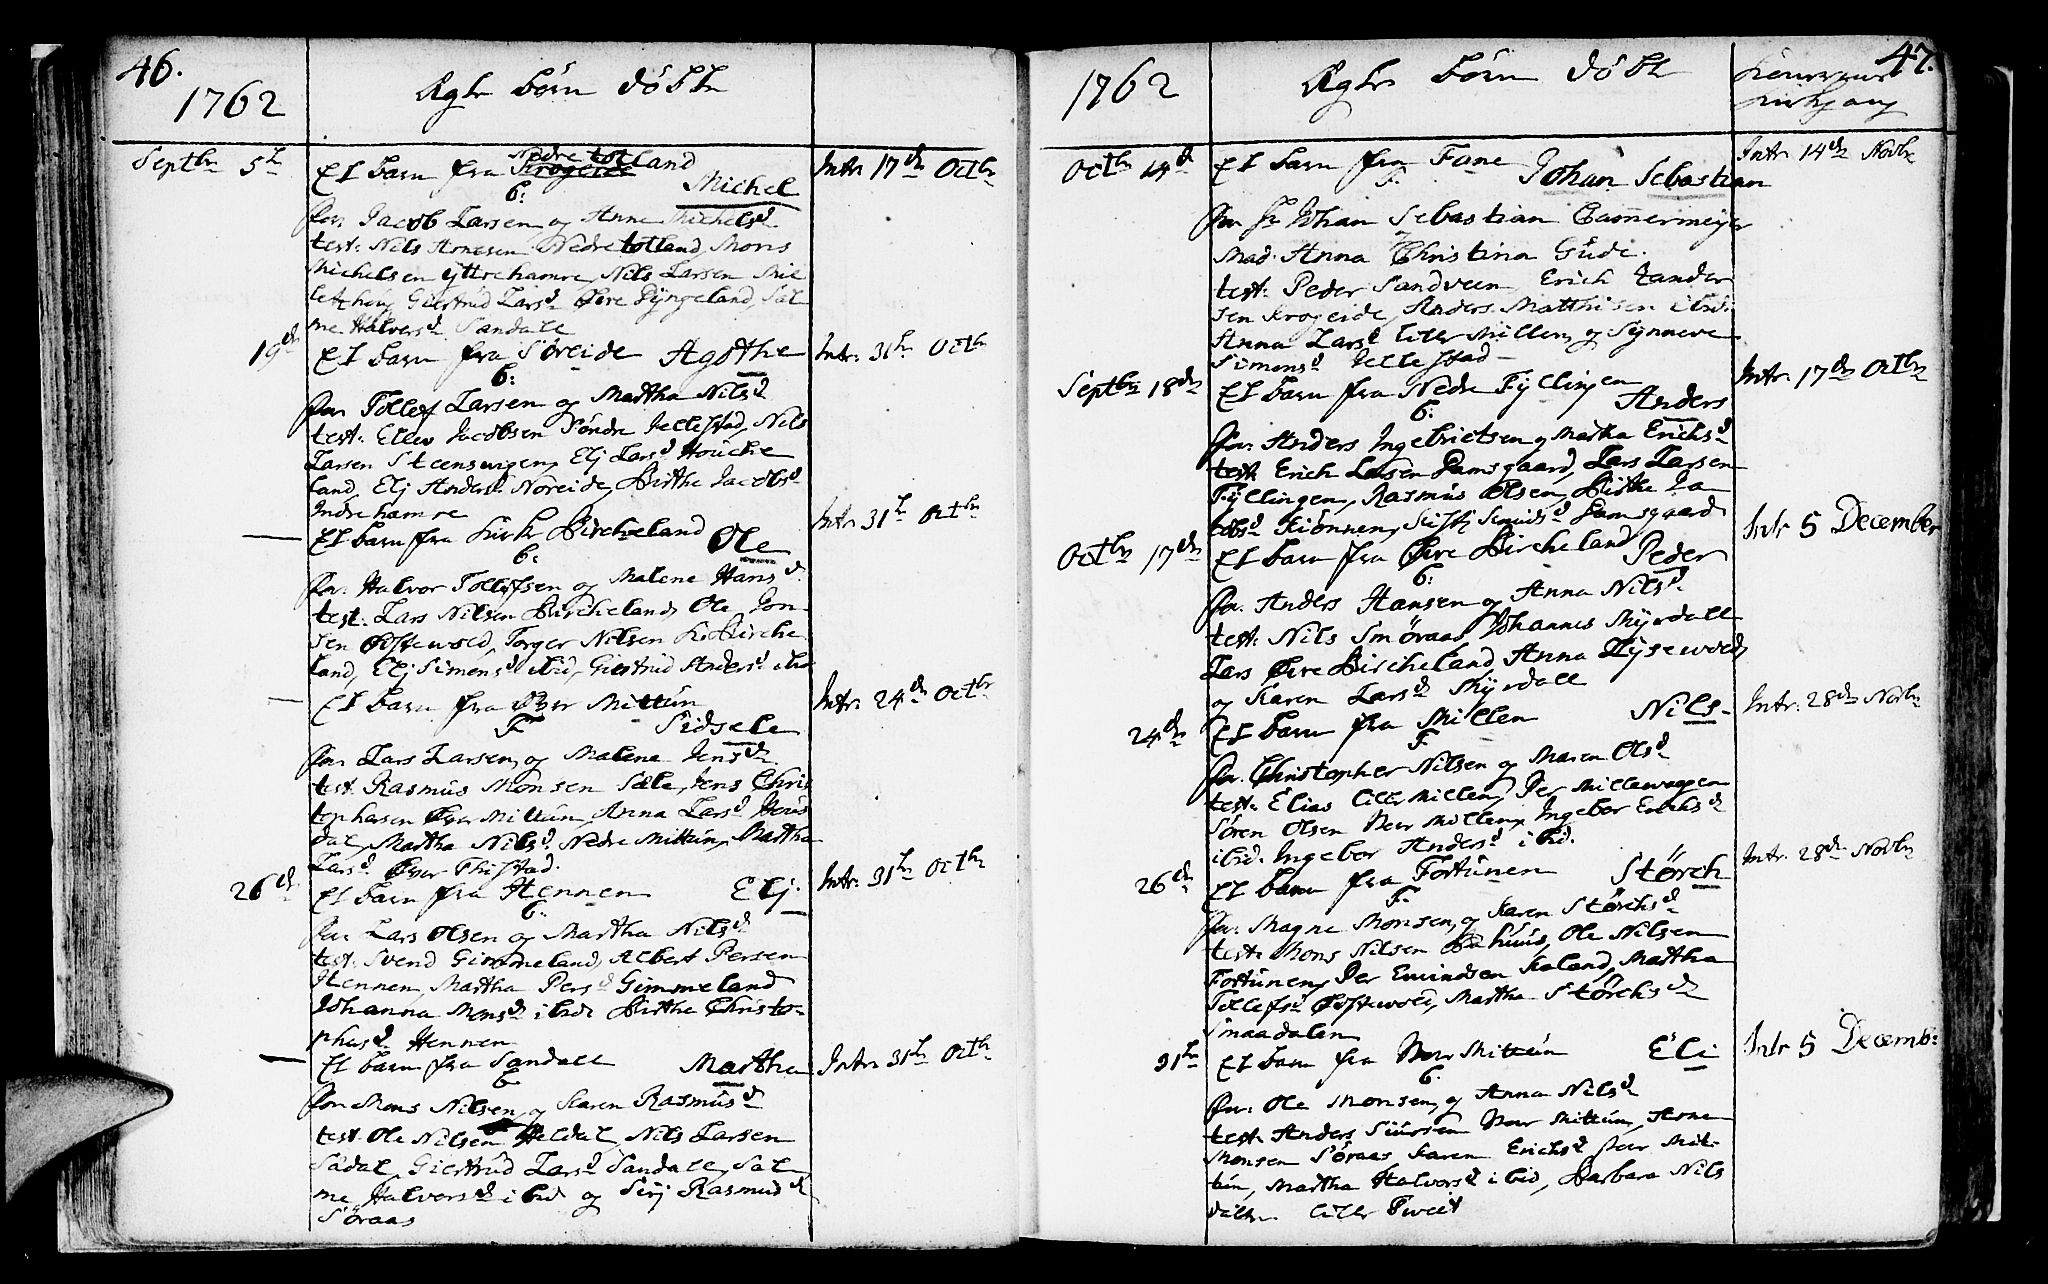 46.
1762
Ægte börn döbte
Septbr 5te
Et barn fra Krogeide Nedre totland
Michel
6:
For: Jacob Larsen og Anne Michelsd
test: Nils Arnesen Nedre totland, Mons
Michelsen yttrehamre, Nils Larsen Mie
letzhou, Giertrud Larsd Øvre Tÿngeland, Sal
me Halvorsd Sandale
Intr. 17de Octbr
19de
Et barn fra Søreide Agothe
6:
For: Tollef Larsen og Martha Nilsd
test: Ellev Jacobsen Søndre Jellestad, Nils
Larsen Steensvigen, Elj Larsd Houche
land, Elj Andersd Noreide, Birthe Jacobsd
Indrehamre
Intr. 31te Octbr
—
Et barn fra Kirke Bircheland Ole
6:
For: Halvor Tollefsen og Malene Hansd
test: Lars Nilsen Bircheland, Ole Jon
sen Østewold, Torger Nilsen K: Birche
land, Elj Simonsd ibid, Giertrud Andersd ibid
Intr. 31te Octbr
—
Et barn fra Øvre Mittún
F. Sidsele
For: Lars Larsen, og Malena Jensd
test: Rasmus Monsen Sæle, Jens Chris
tophersen Øvre Mittún, Anna Larsd Hous
dal, Martha Nilsd Nedre Mittún, Martha
Larsd Øvre Thistad.
Intr. 24de Octbr
26de
Et barn fra Hennen Elj
6:
For: Lars Olsen og Martha Nilsd
test: Svend Gimmeland, Albert Persen
Hennen, Martha Persd Gimmeland
Johanna Monsd ibid Birthe Christo-
phersd Hennen
Intr. 31te Octbr
—
Et barn fra Sandale Martha
6
For: Mons Nilsen og Karen Rasmusd
test: Ole Nilsen Heldal, Nils Larsen
Sådal, Giertrúd Larsd Sandale, Sal
me Halvorsd ibid og Sirj Rasmusd
Söraas
Intr. 31te Octbr
47.
1762
Ægte börn döbte
kirkgang
Octbr 14d
Et barn fra Fane Johan Sebastian
F.
For: Hr Johan Sebastian Cammermeyer
og
Mad. Anna Christina Gude.
test: Peder Sandveen, Erich Zander
sen Krogeide, Anders Matthisen ibid:
Anna Larsd Lille Millen, og Synneve
Simonsd Jellestad
Intr 14de Novbr
Septbr 18de
Et barn fra Nedre Fyllingen
Anders
6:
For: Anders Ingebrictsen og Martha Erichsd
test: Erich Larsen Ramsgaard, Lars Larsen
Fyllingen, Rasmus Olsen, Birthe Ja
cobsd Kiønnen, Ramsgaard
Intr. 17de Octbr
Octbr 17de
Et barn fra Øvre Bircheland Peder
6:
For: Anders Hansen og Anna Nilsd
test: Nils Smøraas, Johannes Skyrdall
Lars Øvre Bircheland, Anna Lysewold
og Karen Larsd Skyrdall
Intr 5 December
24de
Et barn fra Millen Nils
F.
For: Christopher Nilsen og Maren Olsd
test: Elias Lille Millen, Per Millewogen
Søren Olsen Stor Millen, Ingebor Erichsd
ibid. Ingebor Andersd ibid.
Intr. 28de Novbr
26de
Et barn fra Fortúnen Störch
F.
For: Magne Monsen og Karen Störchsd
test: Mons Nilsen Bahuus, Ole Nilsen
Fortúnen, Per Emindsen Kaland, Martha
Tollefsd Østewold, Martha Störchsd
Smaadalen
Intr. 28de Novbr
31te
Et barn fra Stor Mittún Eli
6.
For: Ole Monsen, og Anna Nilsd
test: Anders Siursen Stor Mittún, Arne
Monsen Söraas Karen Erichsd Stor Mit-
tún, Martha Halvorsd ibid, Barbara Nils
datter Lille Tweit
Intr 5 Decemb: